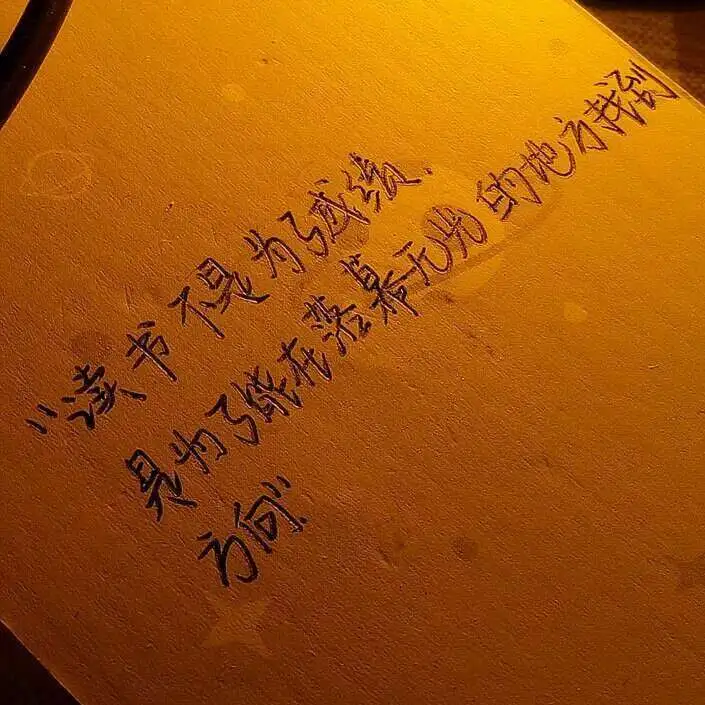 "读书不是为了成绩.
是为了能在落幕无光的地方找到
方向"